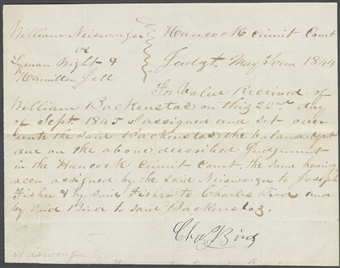 William Niswonger
vs
Lyman Wight &
Hamilton Jett
Hancock Circuit Court
Judgt. May Term 1844
For Value Received of
William Backenstos on this 22nd day
of Sept 1845 I assigned and set over
unto the said Backenstos the balance yet
due on the above described Judgment
in the Hancock Circuit Court, the same having
been assigned by the said Niswonger to Joseph
Fisher & by said Fisher to Charles Bird and
by said Bird to said Backenstos.
Chas Bird